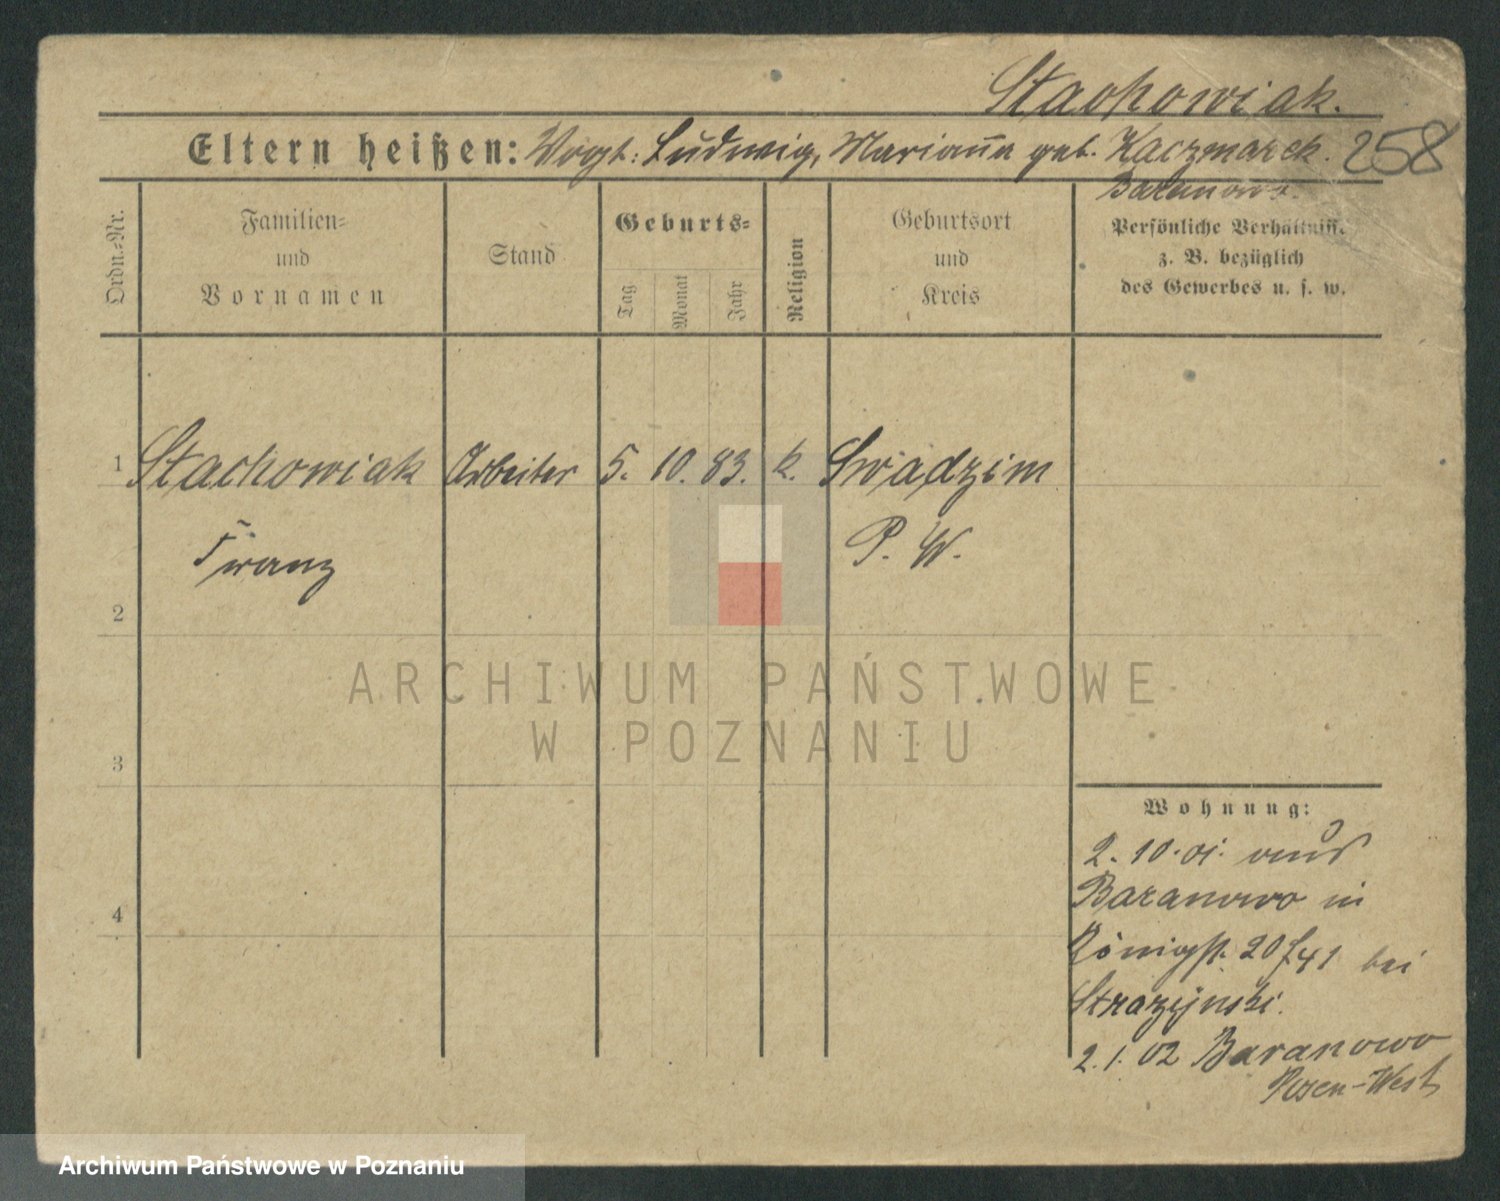 Stachowiak.
Eltern heißen: Vogt: Ludwig, Marianna geb. Kaczmarek. 258
Baranowo.
Ordn.-Nr.
Familien-
und
Vornamen
Stand
Geburts-
Tag
Monat
Jahr
Religion
Geburtsort
und
Kreis
Persönliche Verhältnisse
z. B. bezüglich
des Gewerbes u. s. w.
1 Stachowiak Arbeiter 5. 10. 83. k. Swadzim
Franz P. W.
2
ARCHIWUM PAŃSTWOWE
W POZNANIU
3
Wohnung:
2. 10. 01. aus
4 Baranowo in
Königstr. 20 bei
Strazynski.
2. 1. 02 Baranowo
Posen-West
Archiwum Państwowe w Poznaniu